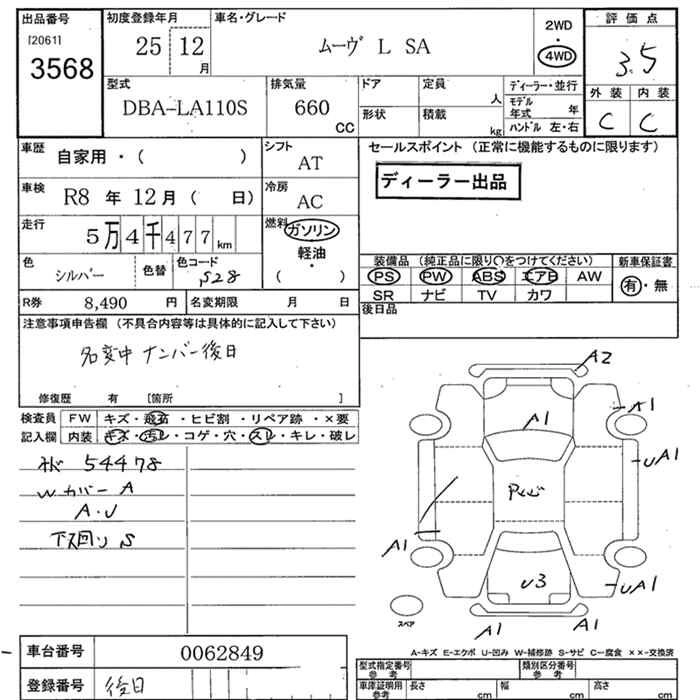 出品番号
[2061]
3568
初度登録年月
25 12
月
車名・グレード
ムーヴ L SA
2WD
4WD
評価点
3.5
外装 内装
C C
型式
DBA-LA110S
排気量
660
CC
ドア 定員
人
形状 積載
kg
ディーラー・並行
モデル年式 年
ハンドル 左・右
車歴 自家用・( )
シフト AT
車検 R8 年 12 月 ( 日)
冷房 AC
走行 5万4千477km
燃料 ガソリン
軽油
・
( )
色 シルバー 色替 色コード S28
R券 8,490 円 名変期限 月 日
セールスポイント (正常に機能するものに限ります)
ディーラー出品
装備品 (純正品に限り〇をつけてください) 新車保証書
PS PW ABS エアB AW 有・無
SR ナビ TV カワ
後日品
注意事項申告欄 (不具合内容等は具体的に記入して下さい)
名変中 ナンバー後日
修復歴 有 [箇所 ]
検査員 FW キズ・飛石・ヒビ割・リペア跡・×要
記入欄 内装 キズ・汚レ・コゲ・穴・スレ・キレ・破レ
54478
Wカバー A
A・U
下回り S
A2
A1
A1
UA1
A1
U3
UA1
A1
A1
スペア
A-キズ E-エクボ U-凹み W-補修跡 S-サビ C-腐食 ××-交換済
車台番号 0062849
登録番号 後日
型式指定番号 参考 類別区分番号 参考
車庫証明用 参考 長さ cm 幅 cm 高さ cm